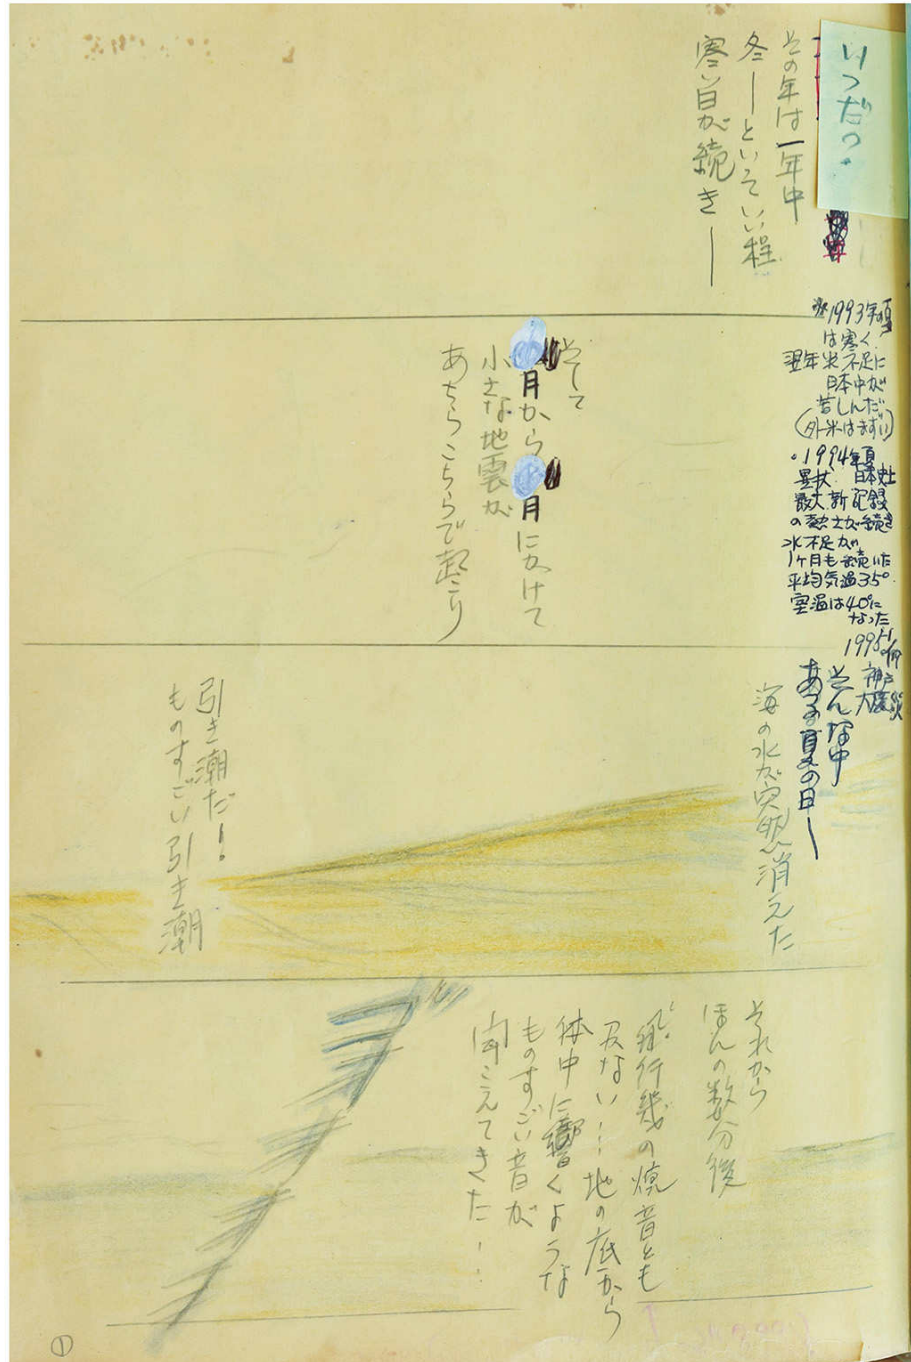 いつだっ.
その年は一年中
冬—といってい程
寒い日が続き—
※1993年の夏
は寒く
翌年米不足に
日本中が
苦しんだ
(外米はまずい)
・1994年夏
異状 日本史上
最大 新記録
の熱さが続き
水不足が
1ヶ月も続いた
平均気温35°
室温は40°に
なった
神戸
大震災
そして
月から 月にかけて
小さな地震が
あちらこちらで起こり
そんな中
ある夏の日—
海の水が突然消えた
引き潮だ!
ものすごい引き潮
それから
ほんの数分後
飛行機の爆音とも
つかない…地の底から
体中に響くような
ものすごい音が
聞こえてきた…
①